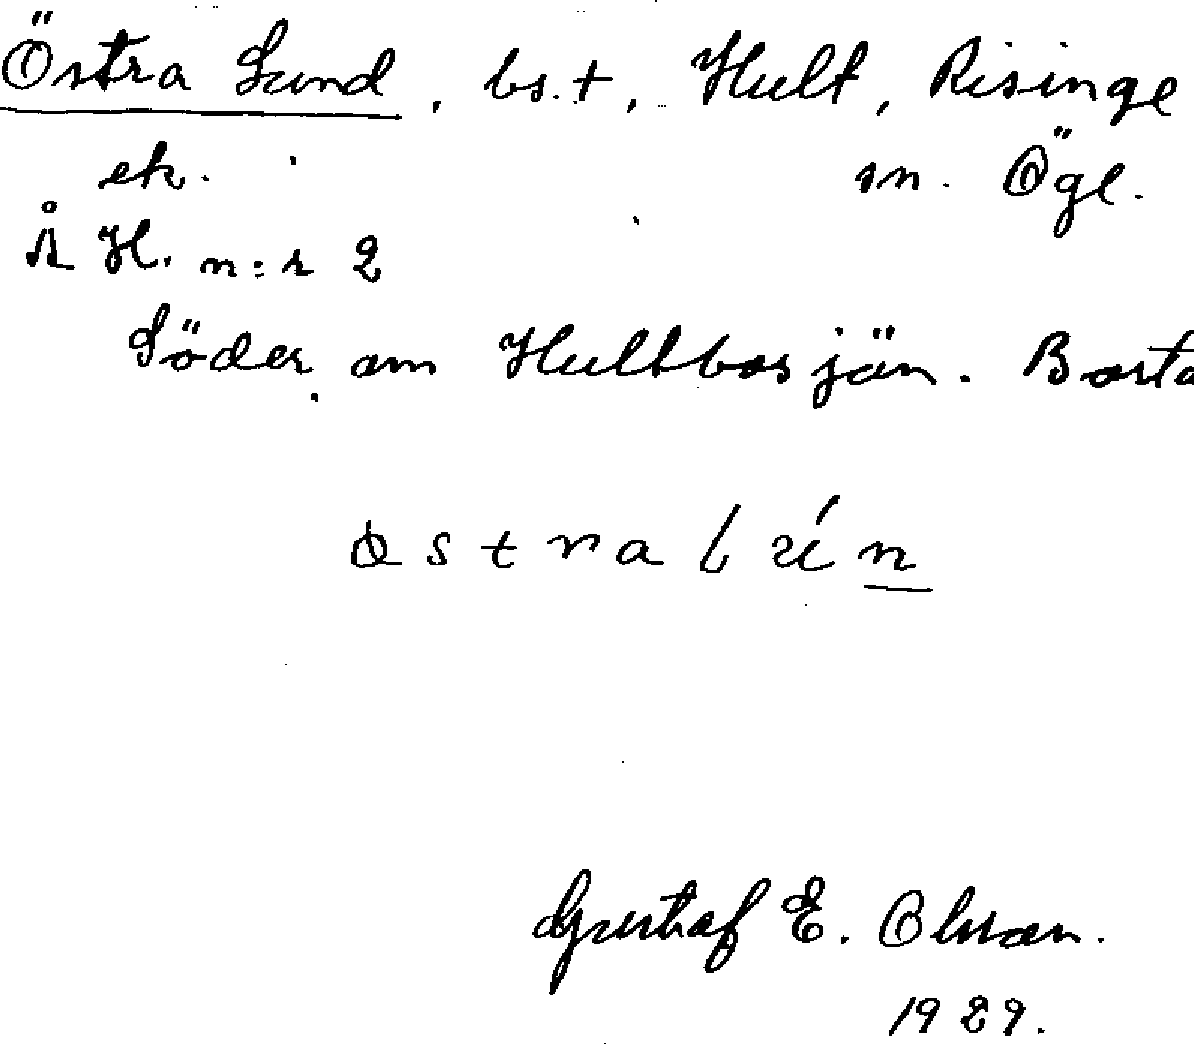 Östra Lund, bs.t, Hult, Risinge
ek. sn. Ögl.
ÅK. n:r 2
Söder om Hultbosjön. Borta
Gustaf E. Olsson.
1929.